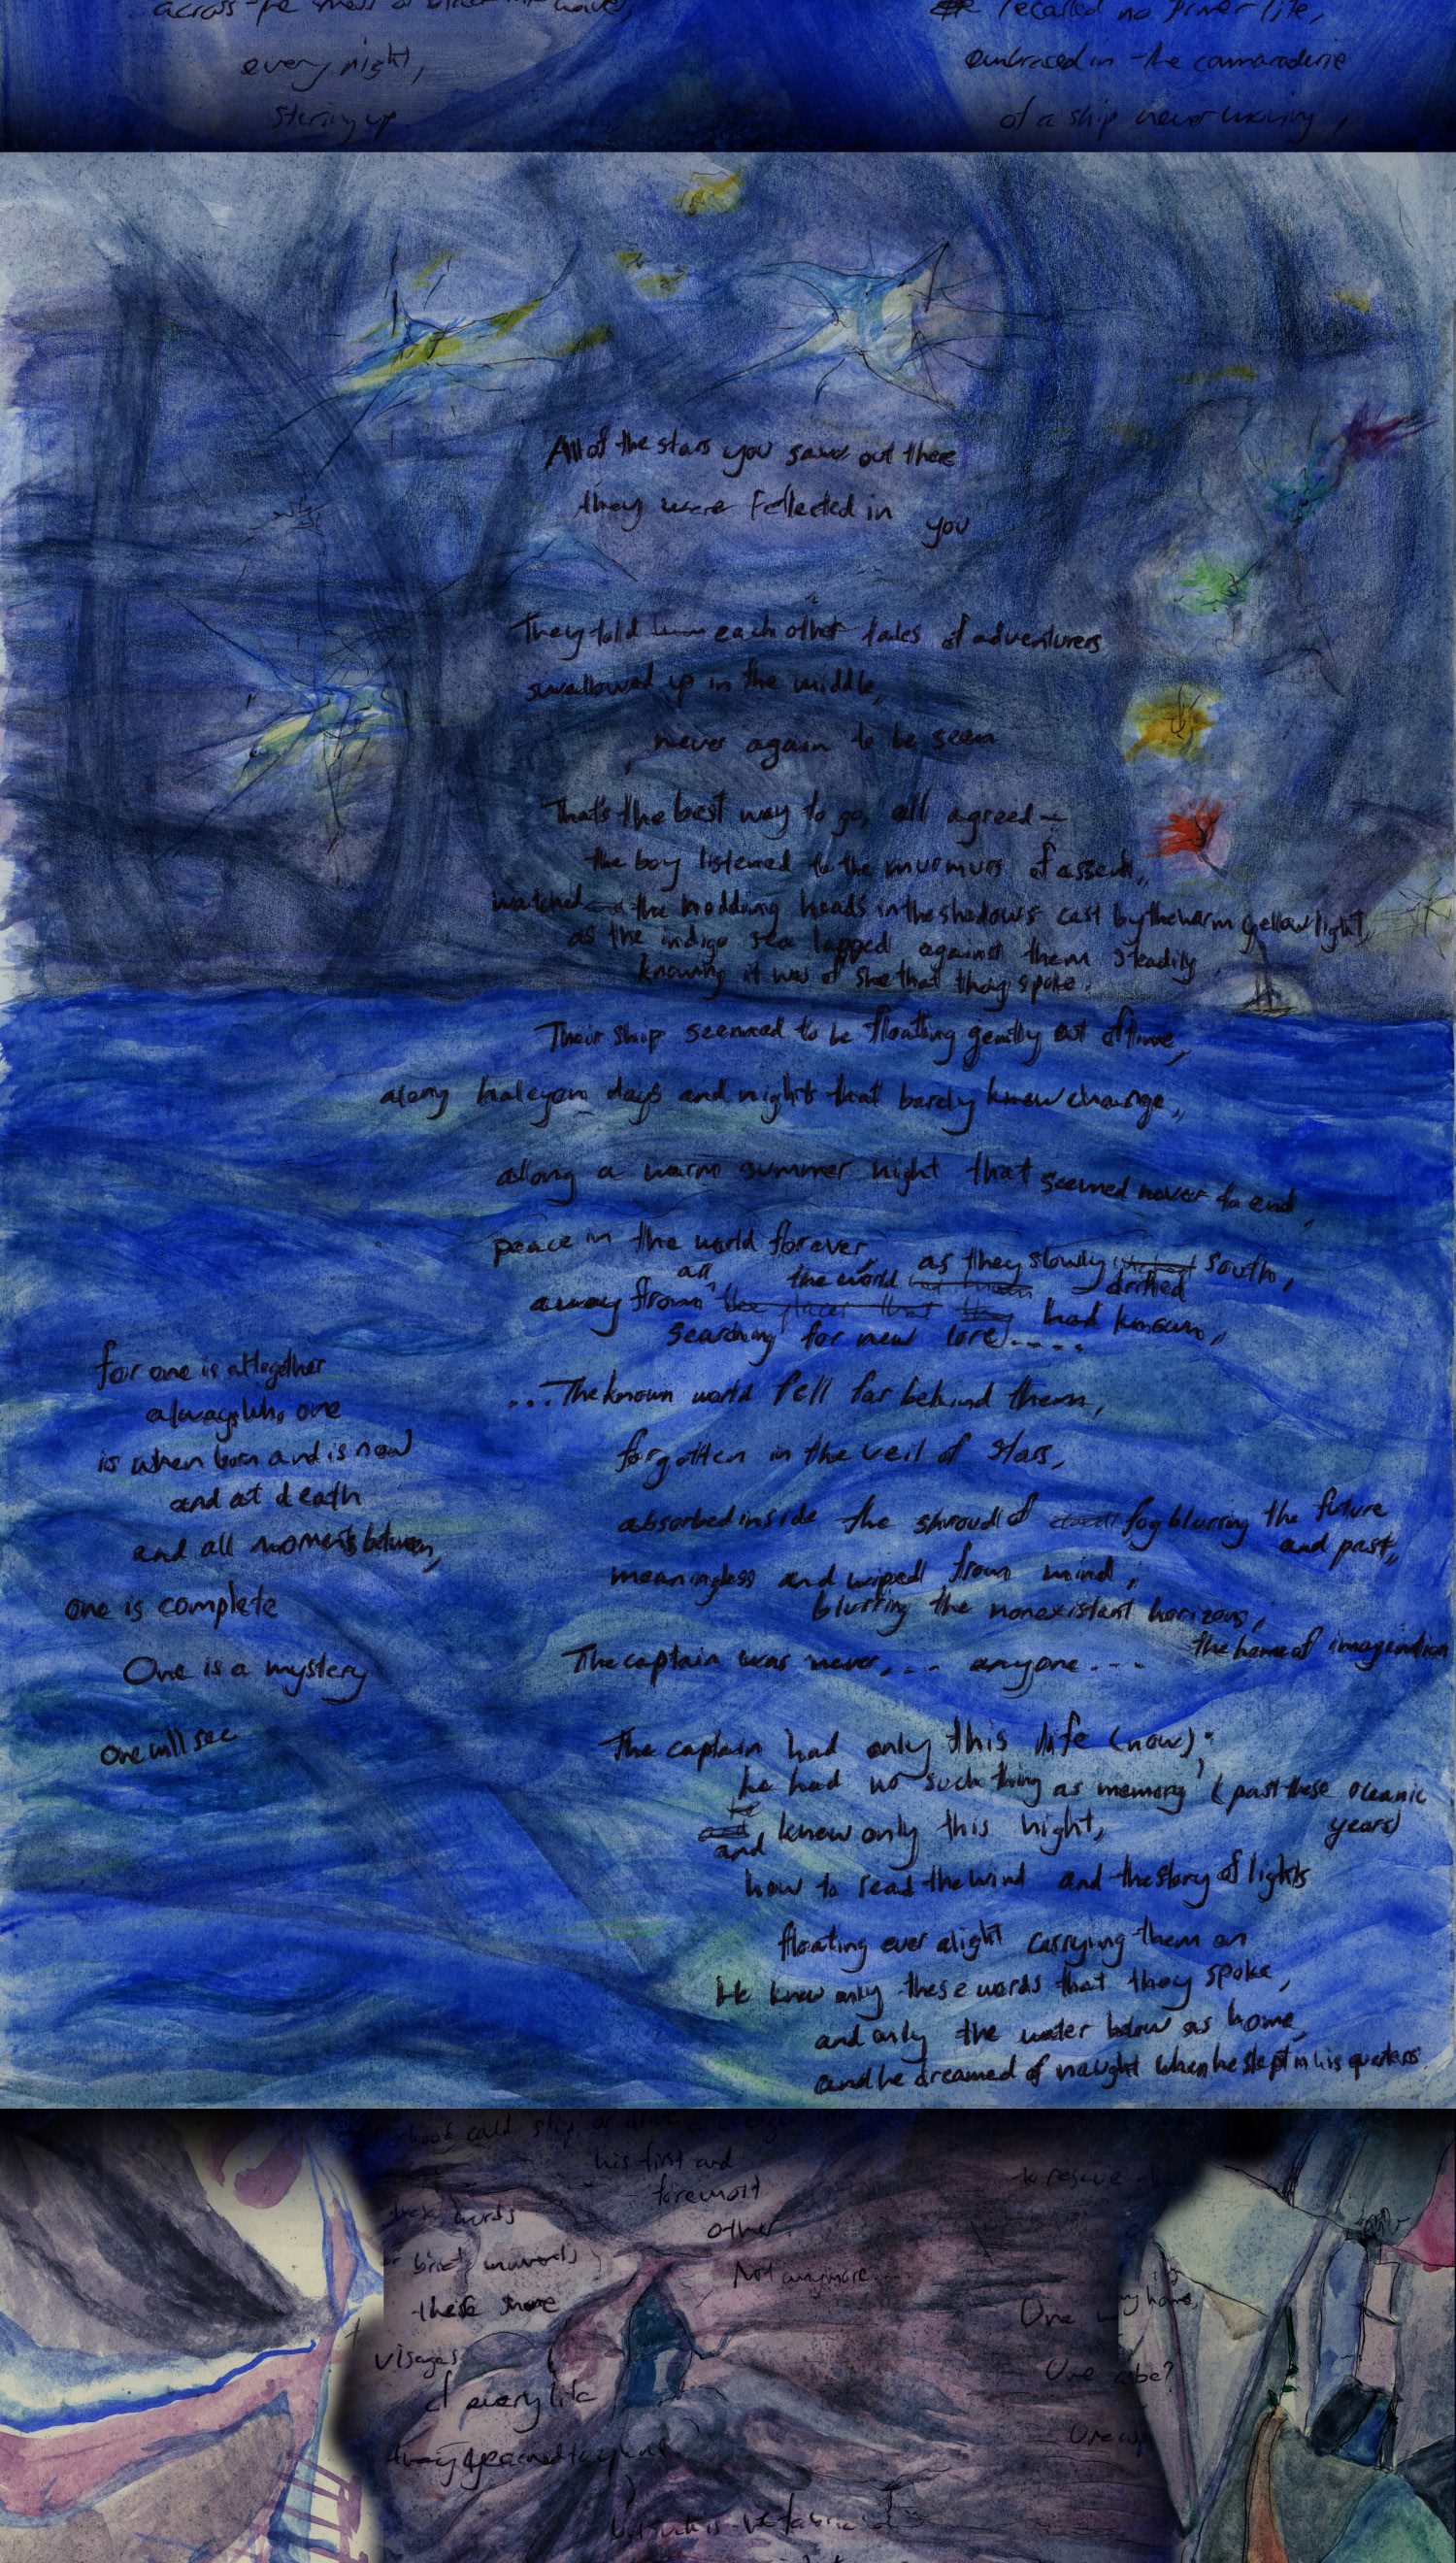 every night,
staring up.
recalled no
embraced in the camaraderie
of a ship never moving,
All of the stars you saw out there
they were reflected in you
They told each other tales of adventurers
swallowed up in the middle,
never again to be seen
That's the best way to go, all agreed—
the boy listened to the murmurs of assent,
watched the nodding heads in the shadows cast by the warm yellow light,
as the indigo sea lapped against them steadily,
knowing it was of she that they spoke.
Their ship seemed to be floating gently out of time,
along halcyon days and nights that barely knew change,
along a warm summer night that seemed never to end,
peace in the world forever, as they slowly drifted south,
away from all the world had known,
searching for new lore....
...The known world fell far behind them,
forgotten in the veil of stars,
absorbed inside the shroud of fog blurring the future
and past,
meaningless and wiped from mind,
blurring the nonexistant horizons,
the home of imagination
The captain was never,... anyone...
The captain had only this life (now);
he had no such thing as memory, (past these oceanic
years)
he, knew only this night,
and
how to read the wind and the story of lights
floating ever alight carrying them on
He knew only these words that they spoke,
and only the water below as home,
and he dreamed of naught when he slept in his quarters
for one is altogether
always who one
is when born and is now
and at death
and all moments between,
one is complete
One is a mystery
One will see
his first and
foremost
other
Not anymore....
words
these more
visages
of every life
to rescue
One
my home,
One be?